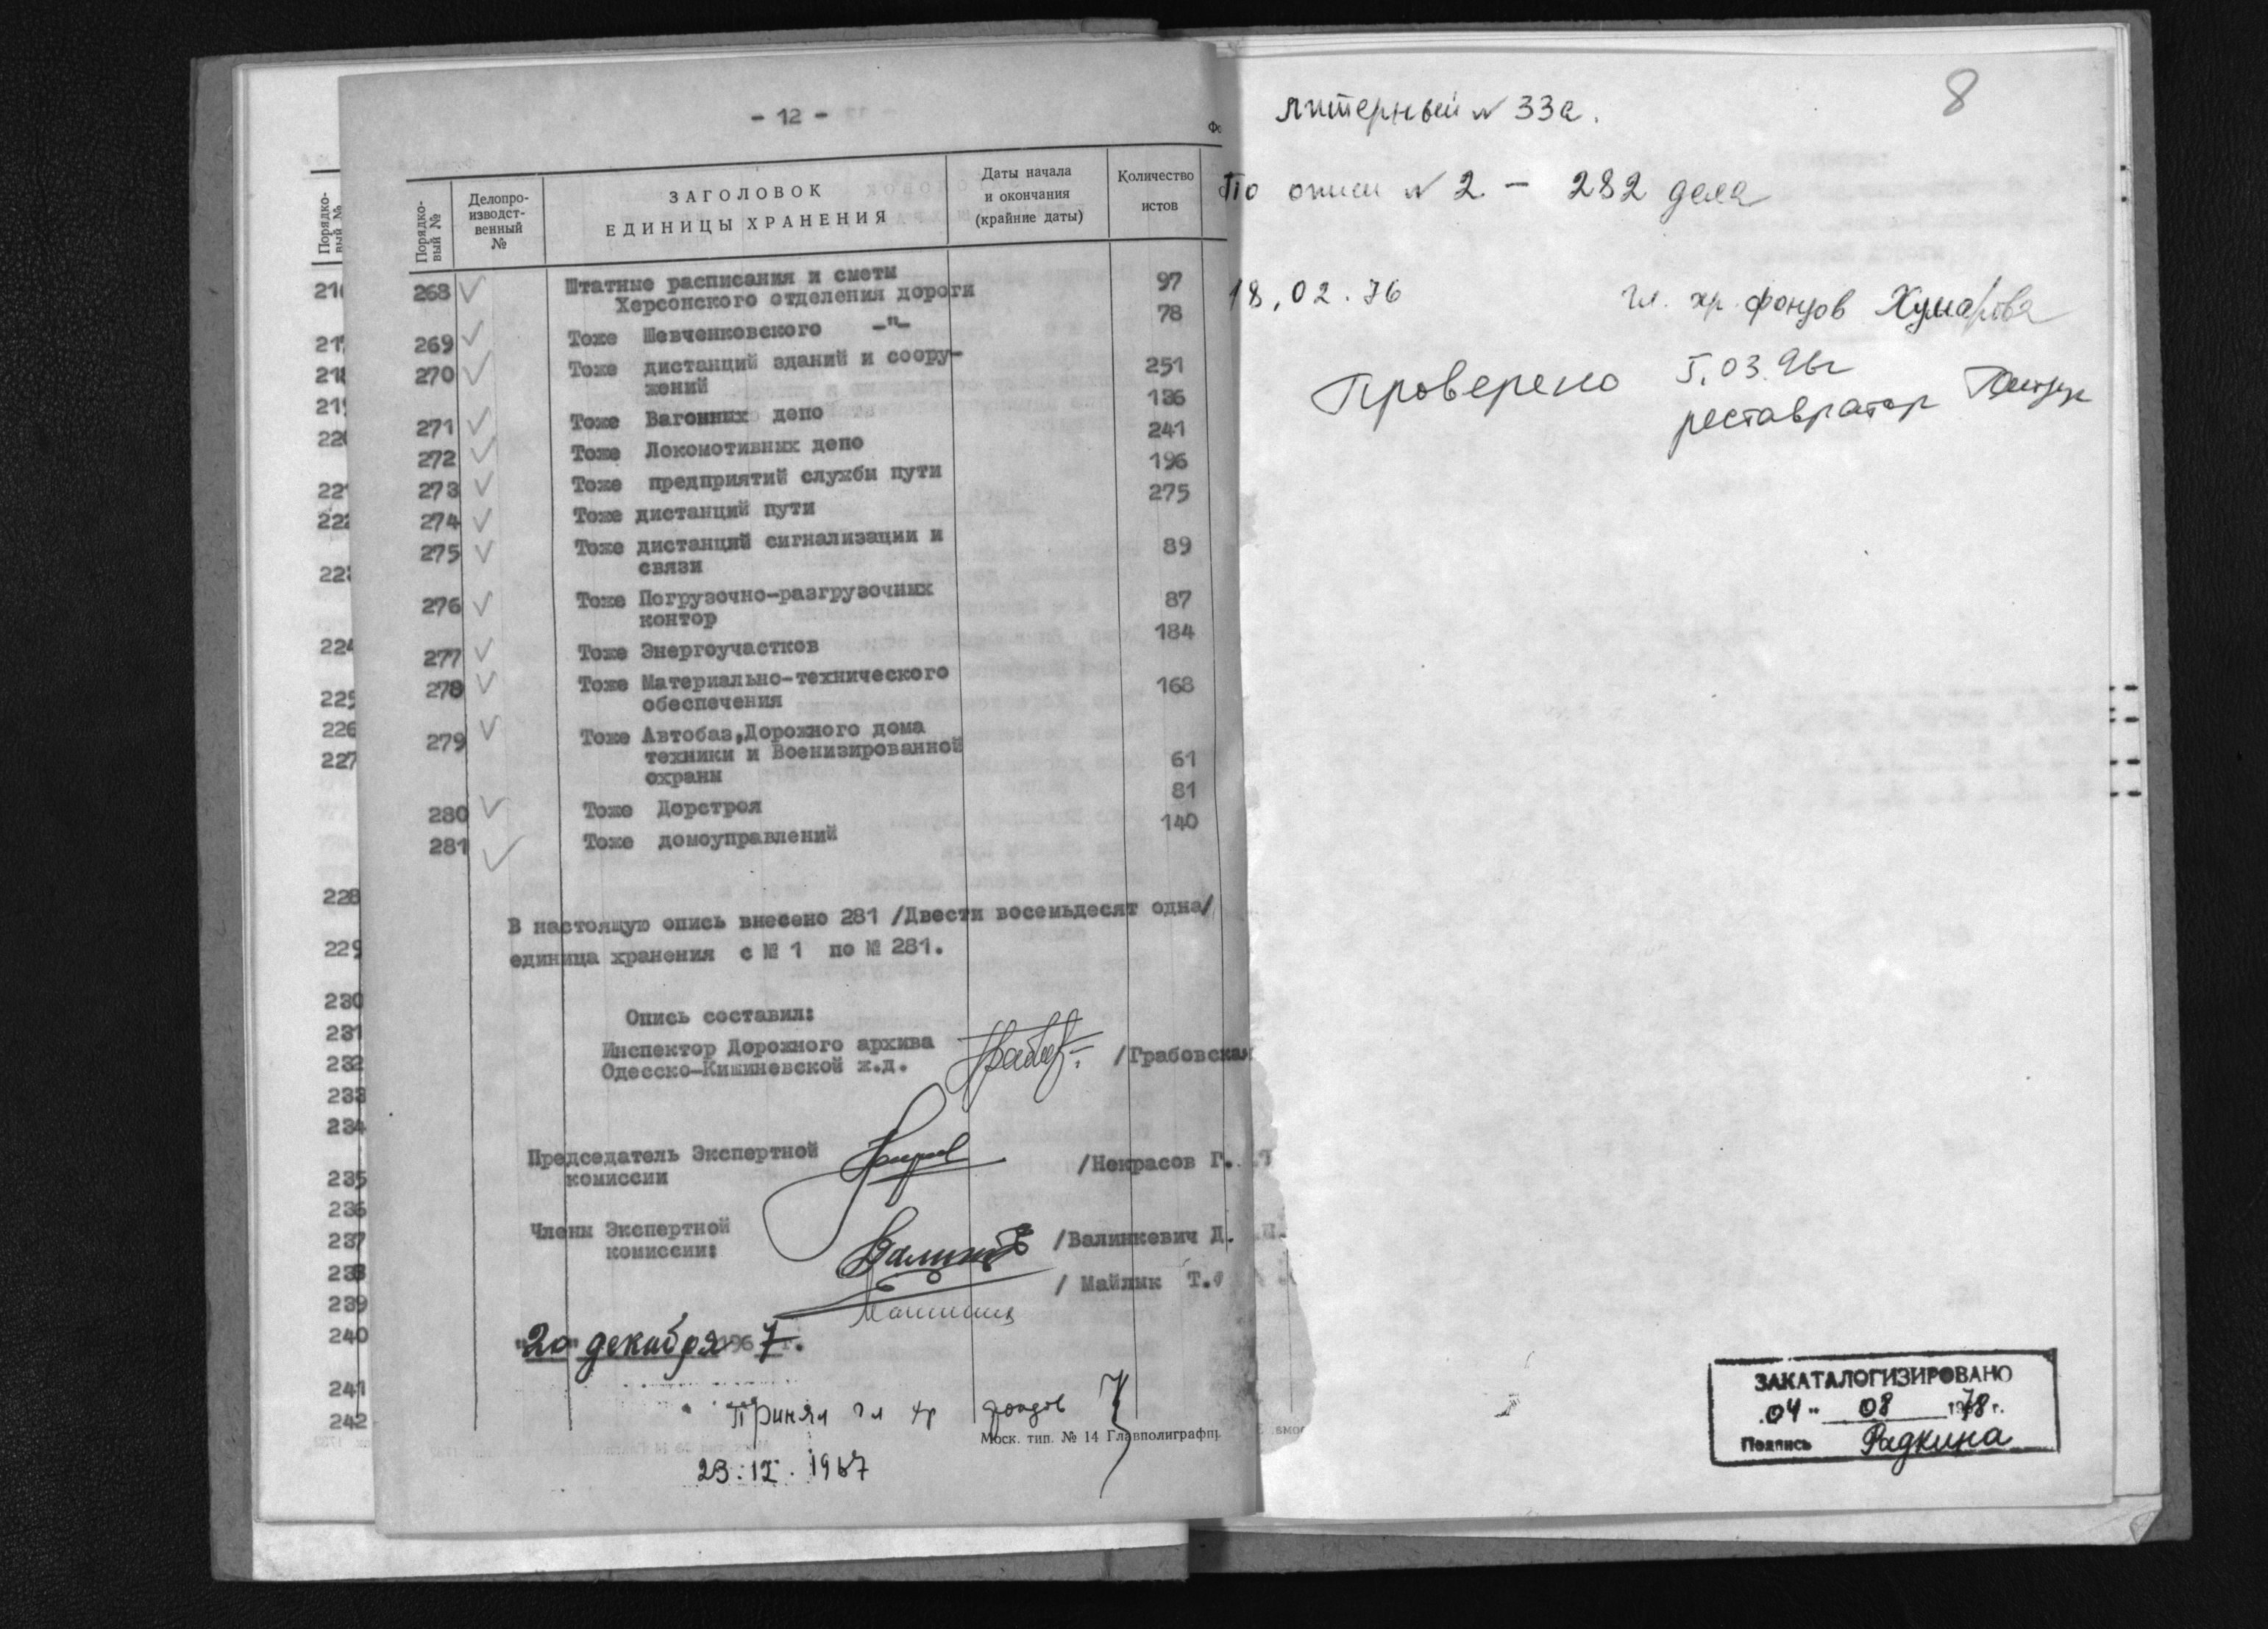 - 12 -
Порядко-
вый №
Делопро-
изводст-
венный
№
ЗАГОЛОВОК
ЕДИНИЦЫ ХРАНЕНИЯ
Даты начала
и окончания
(крайние даты)
Количество
истов
268 Штатные расписания и сметы
Херсонского отделения дороги 97
269 Тоже Шевченковского -"- 78
270 Тоже дистанций зданий и соору-
жений 251
271 Тоже Вагонных депо 136
272 Тоже Локомотивных депо 241
273 Тоже предприятий службы пути 196
274 Тоже дистанций пути 275
275 Тоже дистанций сигнализации и
связи 89
276 Тоже Погрузочно-разгрузочных
контор 87
277 Тоже Энергоучастков 184
278 Тоже Материально-технического
обеспечения 168
279 Тоже Автобаз,Дорожного дома
техники и Военизированной
охраны 61
280 Тоже Дорстроя 81
281 Тоже домоуправлений 140
В настоящую опись внесено 281 /Двести восемьдесят одна/
единица хранения с № 1 по № 281.
Опись составил:
Инспектор Дорожного архива
Одесско-Кишиневской ж.д. /Грабовская
Председатель Экспертной
комиссии /Некрасов Г.
Члены Экспертной
комиссии: /Валинкевич Д.
/ Майлык Т.
"20" декабря 1967 г.
Принял гл хр фондов
23.12.1967
Моск. тип. № 14 Главполиграфпр
Порядко-
вый №
216
217
218
219
220
221
222
223
224
225
226
227
228
229
230
231
232
233
234
235
236
237
238
239
240
241
242
8
литерный № 33а.
По описи № 2 - 282 дела
18.02.76 Гл. хр. фондов Хумарова
Проверено 5.03.96г
реставратор
ЗАКАТАЛОГИЗИРОВАНО
"04" 08 1978 г.
Подпись Радкина